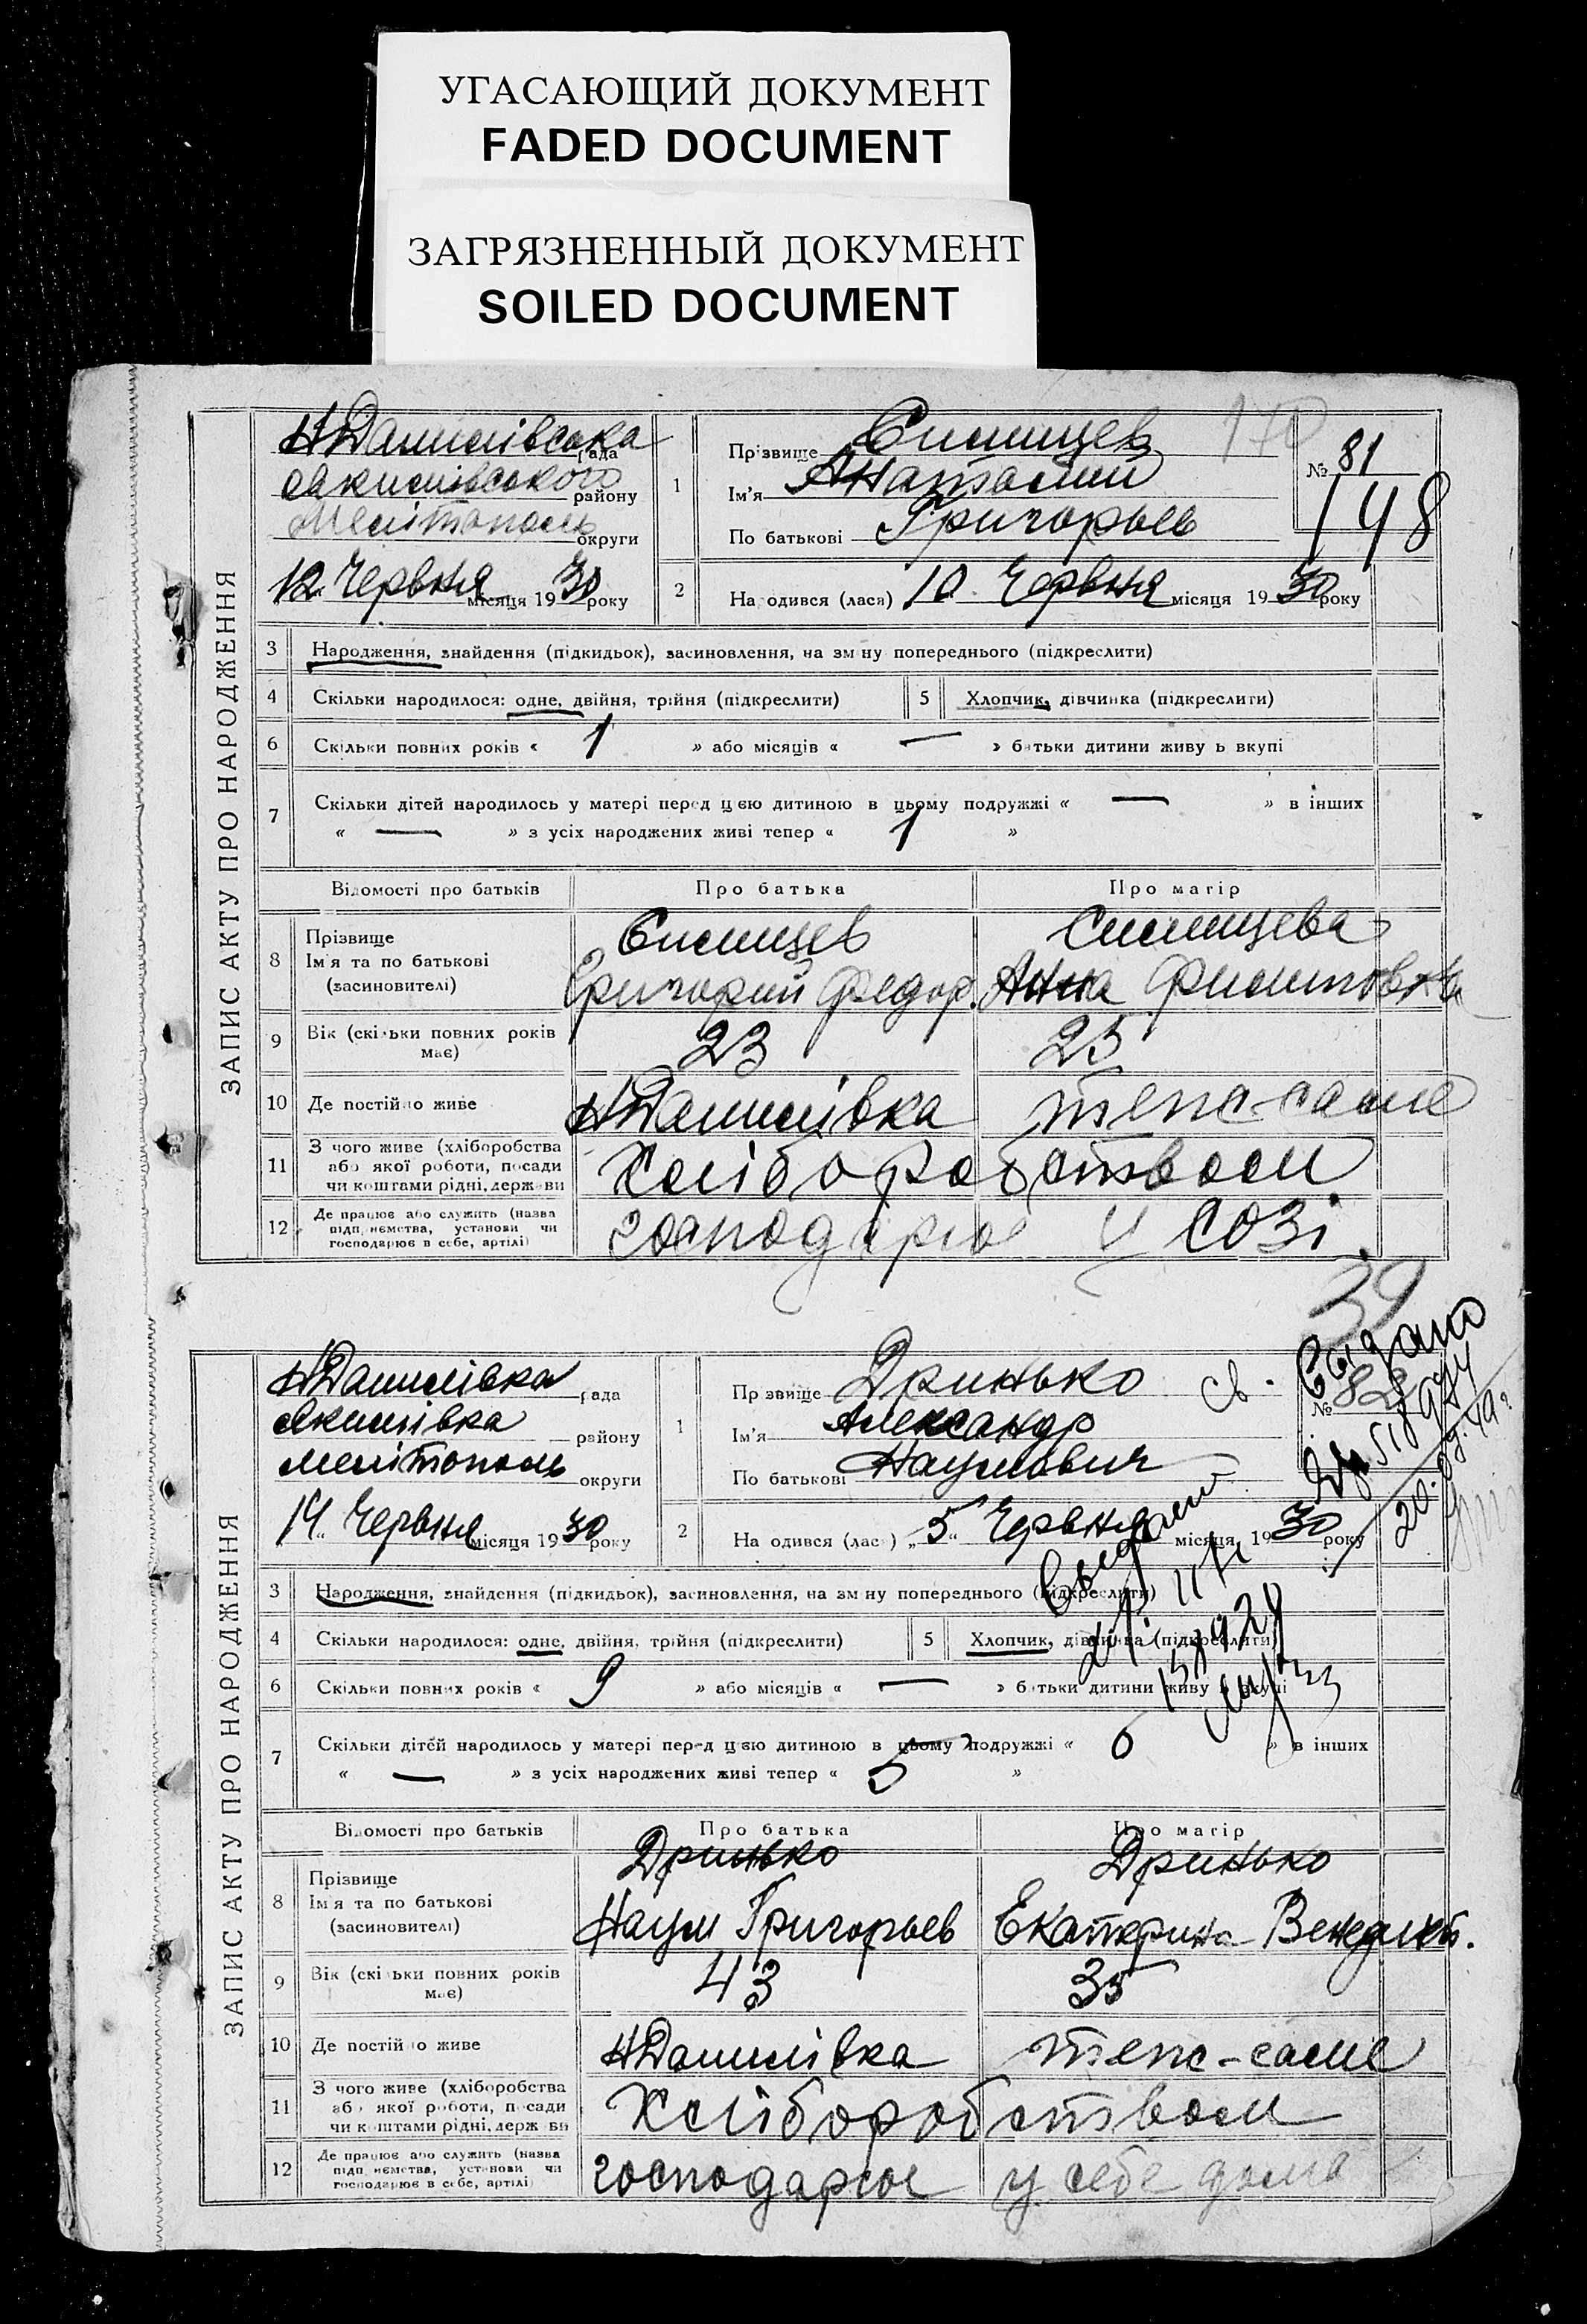 УГАСАЮЩИЙ ДОКУМЕНТ
FADED DOCUMENT
ЗАГРЯЗНЕННЫЙ ДОКУМЕНТ
SOILED DOCUMENT
ЗАПИС АКТУ ПРО НАРОДЖЕННЯ
НДанилівська рада
Якимівського району
Мелітополь округи
12 Червня місяця 1930 року
1
Прізвище
Ім'я Анатолий
По батькові Григорьев
170
№ 81
148
2
Народився (лася) 10 Червня місяця 1930 року
3 Народження, знайдення (підкидьок), засиновлення, на зміну попереднього (підкреслити)
4 Скільки народилося: одне, двійня, трійня (підкреслити) 5 Хлопчик, дівчинка (підкреслити)
6 Скільки повних років « 1 » або місяців « — » батьки дитини живуть вкупі
7 Скільки дітей народилось у матері перед цією дитиною в цьому подружжі « — » в інших
« — » з усіх народжених живі тепер « 1 »
Відомості про батьків Про батька Про матір
8 Прізвище
Ім'я та по батькові
(засиновителі)
Григорий Федор. Анна Филиповна
9 Вік (скільки повних років має) 23 25
10 Де постійно живе НДанилівка теж-саме
11 З чого живе (хліборобства
або якої роботи, посади
чи коштами рідні, держави
Хліборобством
12 Де працює або служить (назва
підприємства, установи чи
господарює в себе, артілі)
господарює у СОЗі
39
ЗАПИС АКТУ ПРО НАРОДЖЕННЯ
НДанилівка рада
Якимівка району
Мелітополь округи
14 Червня місяця 1930 року
1
Прізвище Дринько
Ім'я Александр
По батькові Наумович
№ 82
св. Выдано
20.09.49г.
2
Народився (лася) „5" Червня місяця 1930 року
3 Народження, знайдення (підкидьок), засиновлення, на зміну попереднього (підкреслити)
4 Скільки народилося: одне, двійня, трійня (підкреслити) 5 Хлопчик, дівчинка (підкреслити)
6 Скільки повних років « 9 » або місяців « — » батьки дитини живуть вкупі
7 Скільки дітей народилось у матері перед цією дитиною в цьому подружжі « 6 » в інших
« — » з усіх народжених живі тепер « 5 »
Відомості про батьків Про батька Про матір
8 Прізвище
Ім'я та по батькові
(засиновителі)
Дринько Дринько
Наум Григорьев Екатерина Венедикт.
9 Вік (скільки повних років має) 43 35
10 Де постійно живе НДанилівка теж-саме
11 З чого живе (хліборобства
або якої роботи, посади
чи коштами рідні, держави
Хліборобством
12 Де працює або служить (назва
підприємства, установи чи
господарює в себе, артілі)
господарює у себе дома